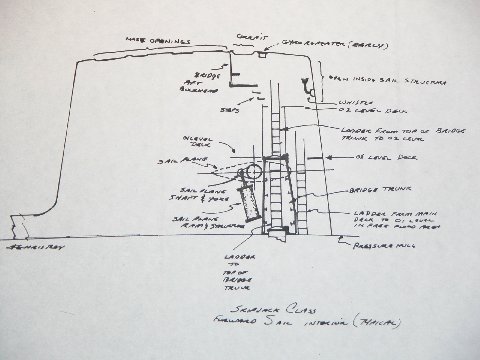 COCKPIT
MAST OPENINGS
GYRO REPEATER (EARLY)
BRIDGE
AFT
BULKHEAD
OPEN INSIDE SAIL STRUCTURE
STEPS
WHISTLE
02 LEVEL DECK
LADDER FROM TOP OF BRIDGE
TRUNK TO 02 LEVEL
01 LEVEL
DECK
SAIL PLANE
01 LEVEL DECK
SAIL PLANE
SHAFT & YOKE
BRIDGE TRUNK
SAIL PLANE
RAM & STRUCTURE
LADDER FROM MAIN
DECK TO 01 LEVEL
IN FREE FLOOD AREA
PRESSURE HULL
LADDER
TO
TOP OF
BRIDGE
TRUNK
SKIPJACK CLASS
FORWARD SAIL INTERIOR (TYPICAL)